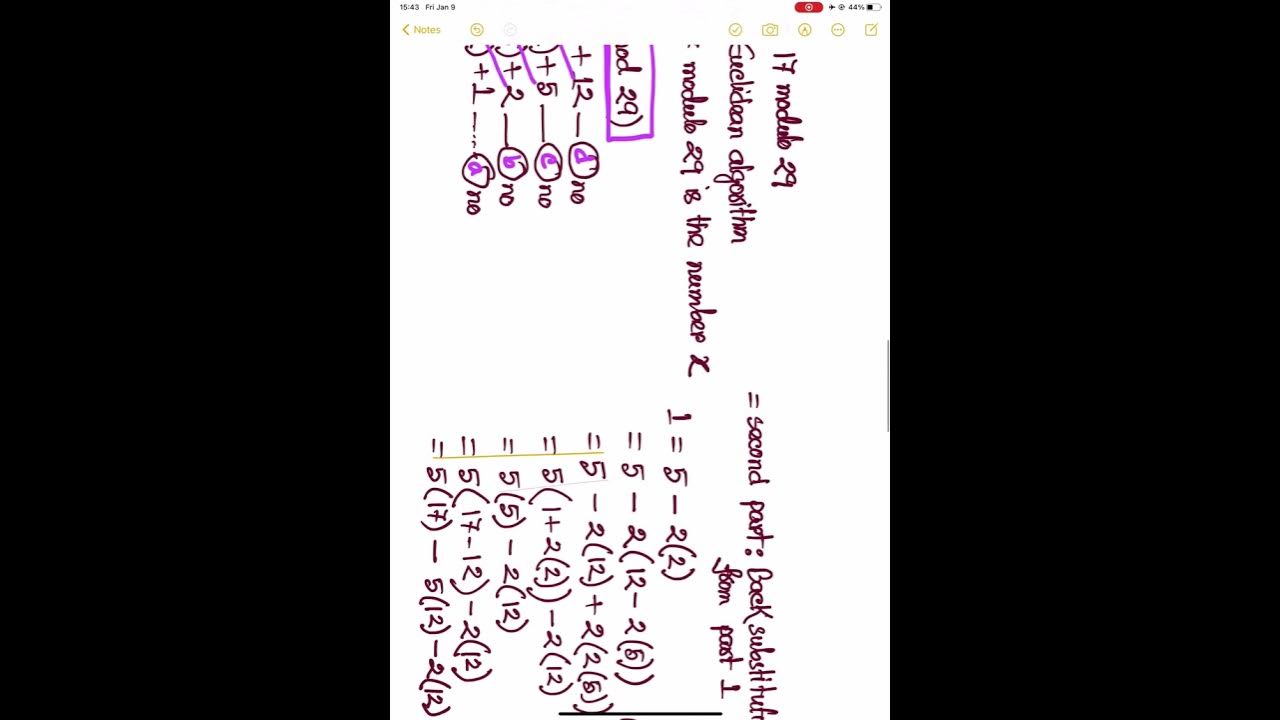 15:43 Fri Jan 9
44%
Notes
17 modulo 29
Euclidean algorithm
modulo 29 is the number x
mod 29)
+ 12 — d no
) + 5 — c no
) + 2 — b no
) + 1 ---- a no
= second part: Back substituti
from part 1
1 = 5 - 2(2)
= 5 - 2(12 - 2(5))
= 5 - 2(12) + 2(2(5))
= 5(1+2(2)) - 2(12)
= 5(5) - 2(12)
= 5(17-12) - 2(12)
= 5(17) - 5(12) - 2(12)